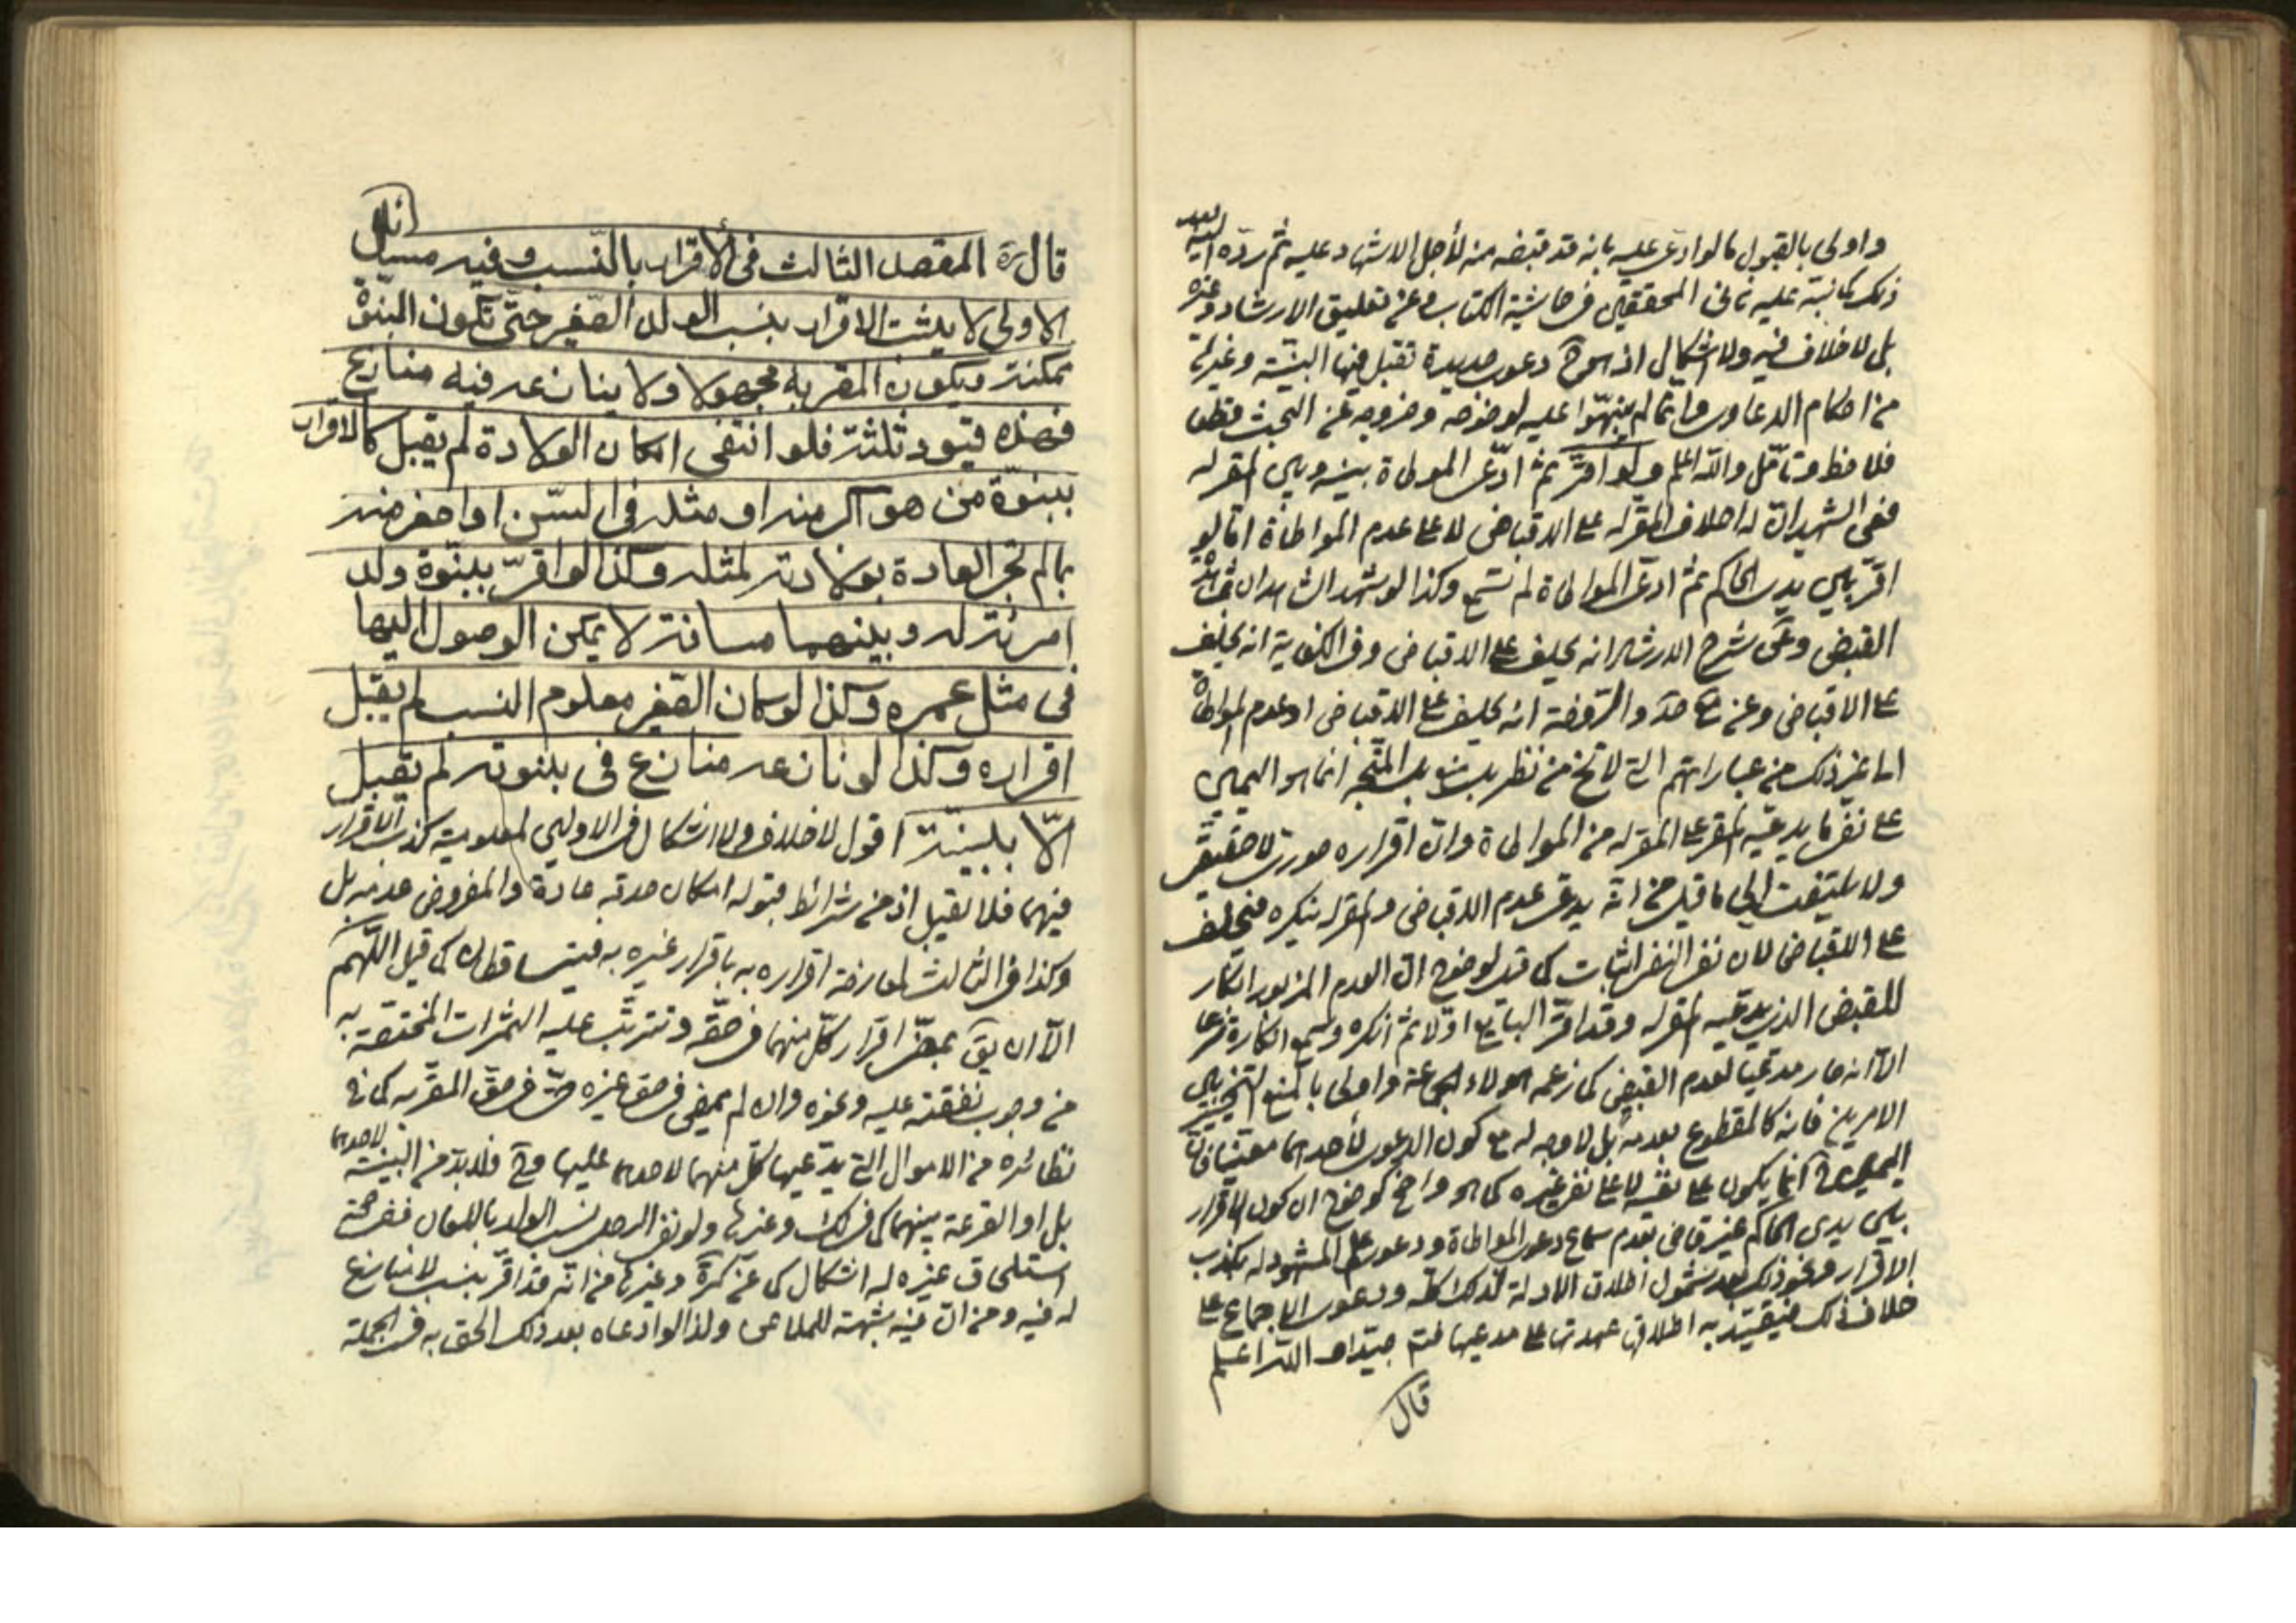 واولى بالقبول ما لو ادعى عليه بانه قد قبضه منه لأجل الاشهاد عليه ثم رده اليه بعد
ذلك كما نبه عليه ثانى المحققين فى حاشية الكتاب وعن تعليق الارشاد وغيره
بل لا خلاف فيه ولا اشكال اذ هو ح دعوى جديدة تقبل فيها البينة وغيرها
من احكام الدعاوى وانما لم ينبهوا عليه لوضوحه وخروجه عن البحث قطعا
فلاحظ وتأمل والله اعلم ولو اقر ثم ادعى المواطاة بينه وبين المقر له
ففى الشهيد ان له احلاف المقر له على الاقباض لا على عدم المواطاة اما لو
اقر بين يدى الحاكم ثم ادعى المواطاة لم تسمع وكذا لو شهد الشاهدان بمشاهدة
القبض وعن شرح الارشاد انه يحلف على الاقباض وفى الكفاية انه يحلف
على الاقباض وعن لك والروضة انه يحلف على الاقباض او عدم المواطاة
الى غير ذلك من عباراتهم التى لا تخ من نظر بل منع بل المتجه انما هو اليمين
على نفى ما يدعيه المقر على المقر له من المواطاة وان اقراره صورى لا حقيقى
ولا يلتفت الى ما قيل من انه يدعى عدم الاقباض والمقر له ينكره فيحلف
على الاقباض لان نفى النفى اثبات كما قد لوضوح ان العدم المزبور انكار
للقبض الذى يدعيه المقر له وقد اقر البايع اولا ثم انكره ولم يسمع انكاره شرعا
الا انه صار مدعيا لعدم القبض كما زعمه هولاء الجماعة واولى بالمنع التخيير بين
الامرين فانه كالمقطوع بعدمه بل لا وجه له مع كون الدعوى لأحدهما معينا فان
اليمين ح انما يكون على نفيه لا على نفى غيره كما هو واضح كوضوح ان كون الاقرار
بين يدى الحاكم غير قاض بعدم سماع دعوى المواطاة ودعوى علم المشهود له بكذب
الاقرار ونحو ذلك بعد شمول اطلاق الادلة لذلك كله ودعوى الاجماع على
خلاف ذلك فيقيد به اطلاق عهدتها على مدعيها فتم جيدا والله اعلم
قال
قال ره المقصد الثالث فى الأقرار بالنسب وفيه مسائل
الاولى لا يثبت الاقرار بنسب الولد الصغير حتى تكون البنوة
ممكنة ويكون المقر به مجهولا ولا ينازعه فيه منازع
فهذه قيود ثلثة فلو انتفى امكان الولادة لم يقبل كالاقرار
ببنوة من هو اكبر منه او مثله فى السن او اصغر منه
بما لم تجر العادة بولادته لمثله وكذا لو اقر ببنوة ولد
امرئة له وبينهما مسافة لا يمكن الوصول اليها
فى مثل عمره وكذا لو كان الصغير معلوم النسب لم يقبل
اقراره وكذا لو نازعه منازع فى بنوته لم يقبل
الا ببينة اقول لا خلاف ولا اشكال فى الاوليين لمعلومية كذب الاقرار
فيهما فلا يقبل اذ من شرائط قبوله امكان صدقه عادة والمفروض عدمه بل
وكذا فى الثالث لمعارضة اقراره به باقرار غيره به فيتساقطان كما قيل اللهم
الا ان يق بمضى اقرار كل منهما فى حقه وتترتب عليه الثمرات المختصة به
من وجوب نفقته عليه ونحوه وان لم يمض فى حق غيره حتى فى حق المقر به كما فى
نظائره من الاموال التى يدعيها كل منهما لاحدهما عليها وح فلا بد من البينة لاحدهما
بل او القرعة بينهما كما فى لك وغيرها ولو نفى الرجل نسب الولد باللعان ففى صحة
استلحاق غيره له اشكال كما عن كرة وغيرها من انه قد اقر بنسب لا منازع
له فيه ومن ان فيه شبهة للملاعن ولذا لو ادعاه بعد ذلك الحق به فى الجملة